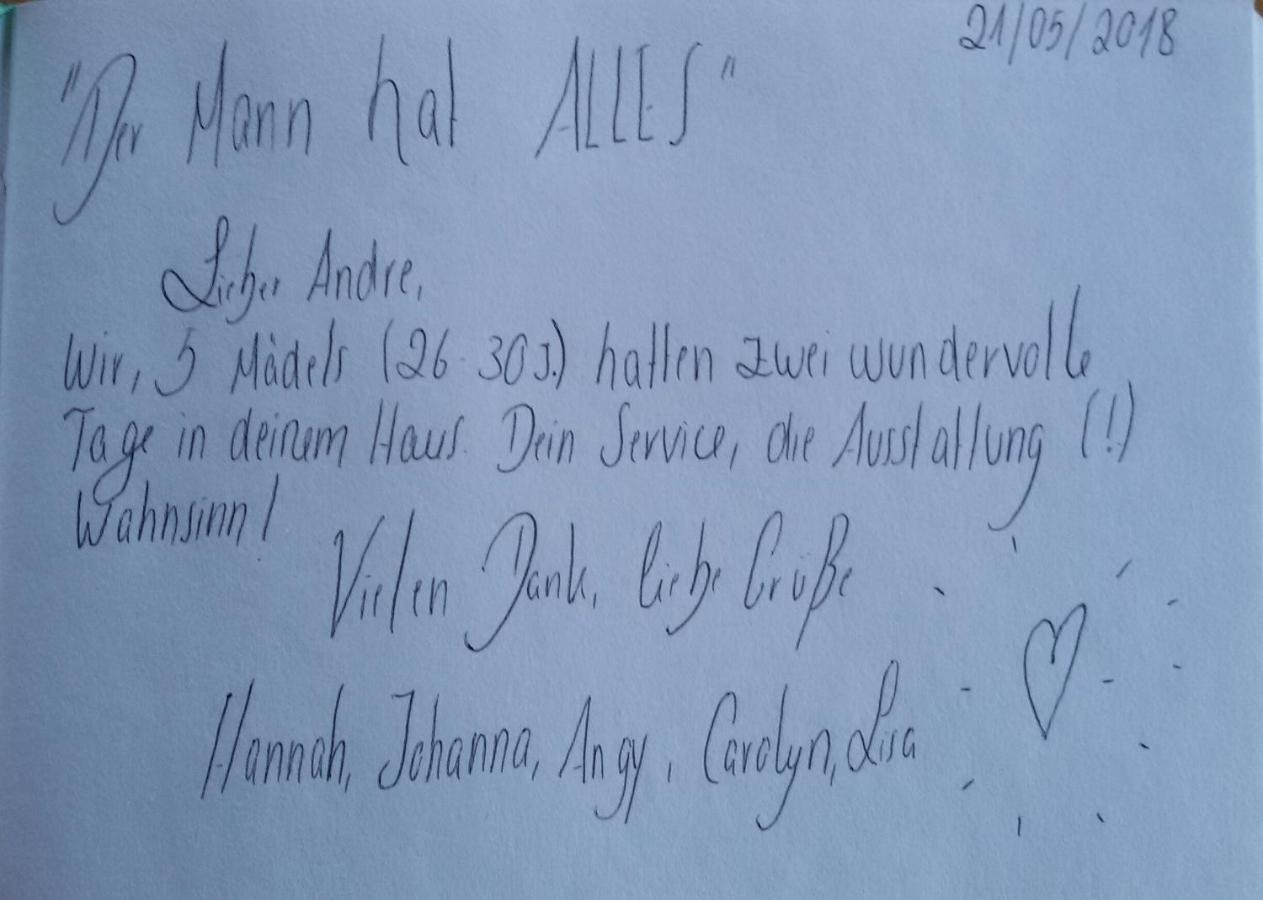 21/05/2018
"Der Mann hat ALLES"
Lieber Andre,
Wir, 5 Mädels (26-30J.) hatten zwei wundervolle
Tage in deinem Haus. Dein Service, die Ausstattung (!)
Wahnsinn!
Vielen Dank, liebe Grüße
Hannah, Johanna, Angy, Carolyn, Lisa